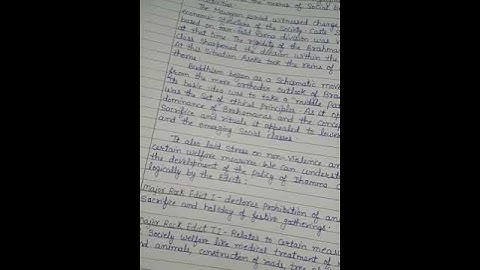 means of Social
The Mauryan period witnessed change
economic structure of the Society. Caste S
based on four-fold Varna division was
at that time. The rigidity of the Brahma
class sharpened the division within the
At this situation Asoka took the reins of
Buddhism began as a Schismatic move
from the more orthodox outlook of Bra
Its basic idea was to take a "middle pa
was the Set of ethical Principles. As it op
dominance of Brahamanas and the concep
Sacrifice and rituals it appealed to lower
and the emerging Social classes.
It also laid Stress on non-violence an
certain welfare measures. We can understa
the development of the Policy of Dhamma C
logically by the Edicts:
Major Rock Edict I - declares Prohibition of an
Sacrifice and holiday of festive gatherings.
Major Rock Edict II - Relates to Certain measu
Society welfare like medical treatment of
nd animals, construction of roads,